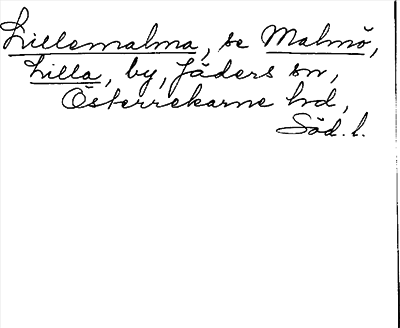 Lillemalma, se Malmö,
Lilla, by, Jäders sn,
Österrekarne hd,
Söd. l.